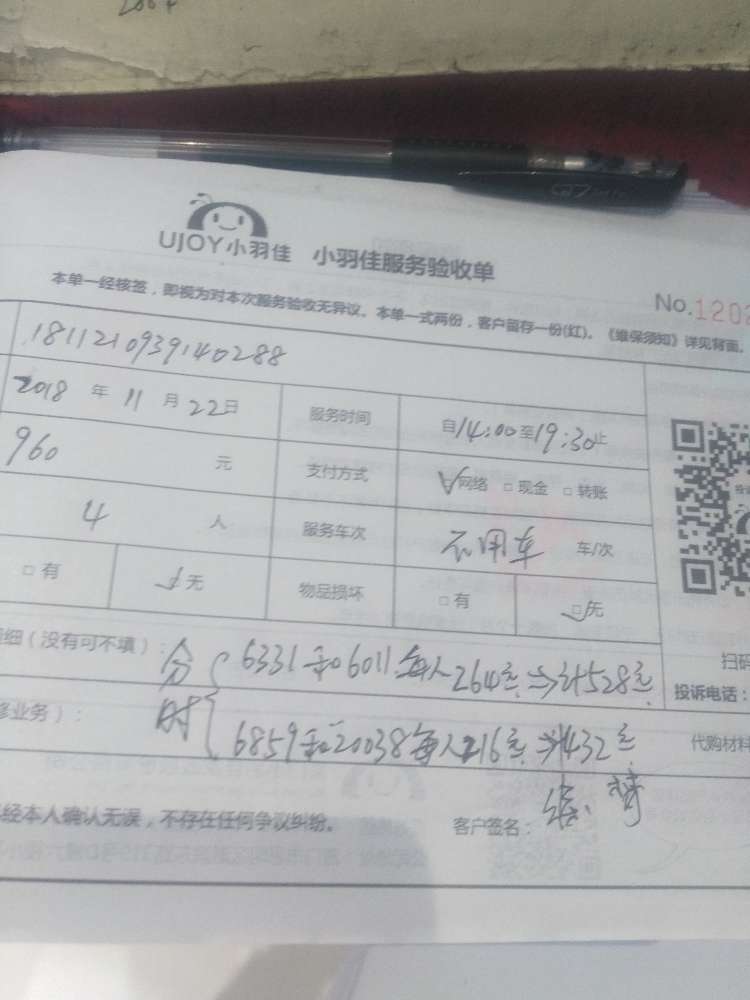 UJOY小羽佳 小羽佳服务验收单
No.1202
本单一经核签，即视为对本次服务验收无异议。本单一式两份，客户留存一份(红)。《维保须知》详见背面。
181121093914028​8
2018 年 11 月 22日 服务时间 自14:00至19:30止
960 元 支付方式 网络 □ 现金 □ 转账
4 人 服务车次 不用车 车/次
□ 有 无 物品损坏 □ 有 □ 无
细（没有可不填）: 分 6331和6011每人264元 ⇒计528元
扫码
投诉电话：
修业务）： 时 6859和20038每人216元 ⇒计432元
代购材料
经本人确认无误，不存在任何争议纠纷。 客户签名：